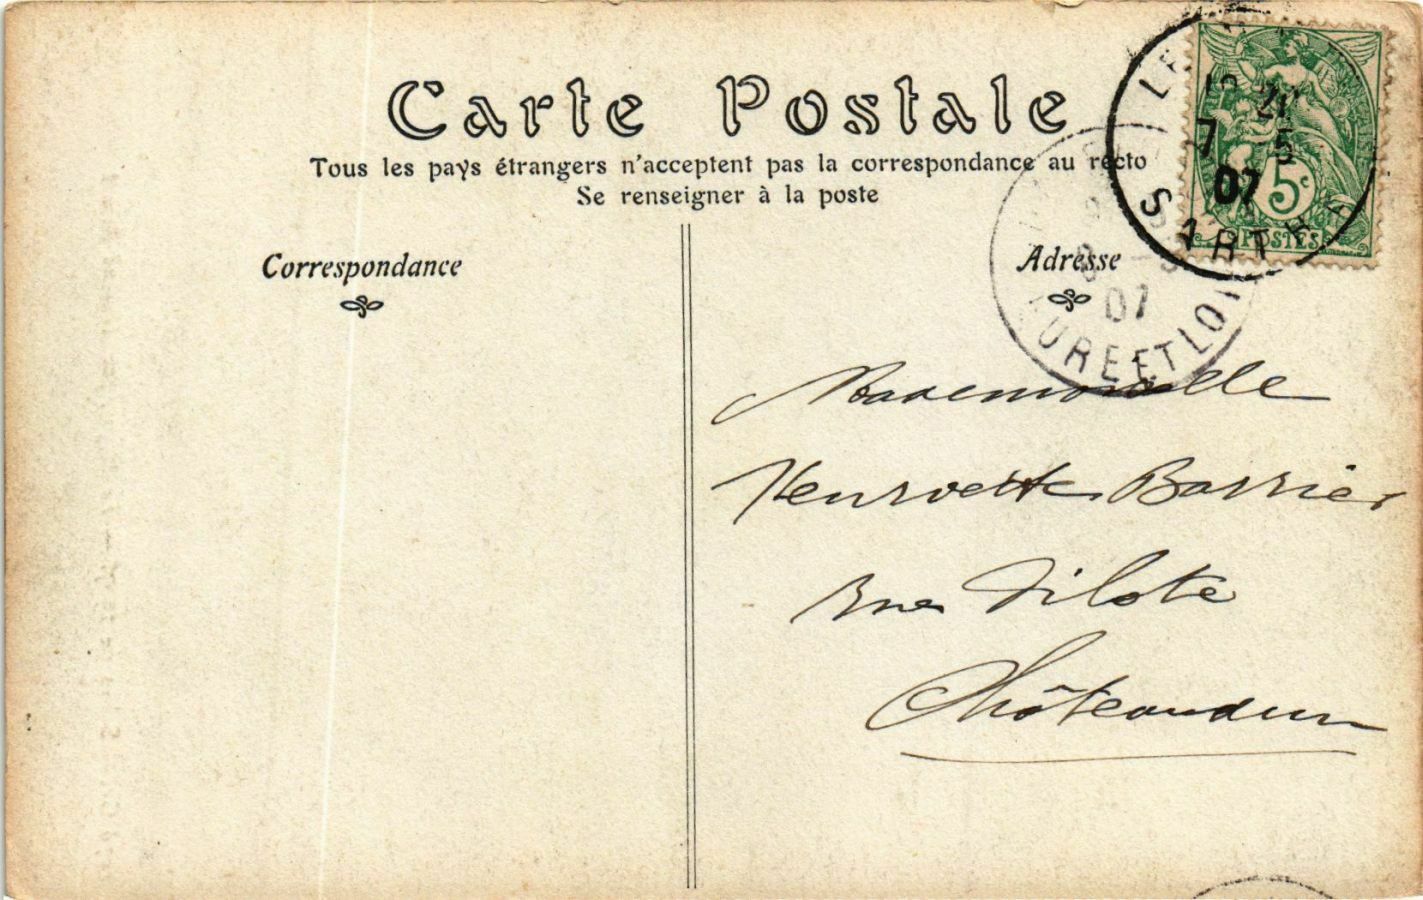 Carte Postale
Tous les pays étrangers n'acceptent pas la correspondance au recto
Se renseigner à la poste
Correspondance
Adresse
LE
7 5
07
SARTHE
5c
POSTES
07
EURE ET LOIR
Mademoiselle
Henriette Barrier
Rue Pilote
Châteaudun